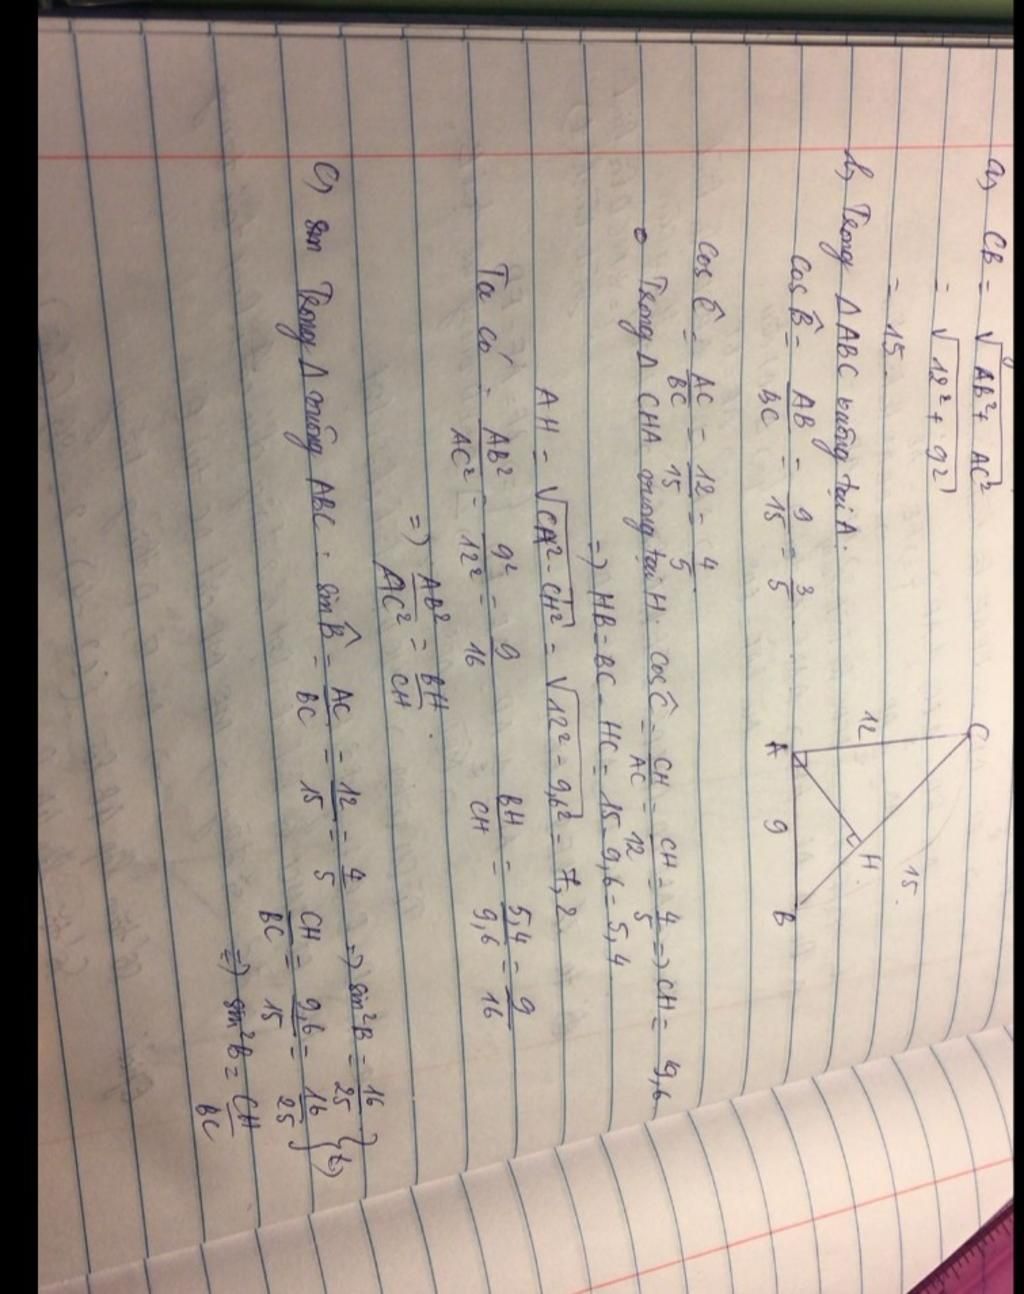 a) CB = √(AB² + AC²)
= √(12² + 9²)
= 15.
C
12
15.
H.
A
9
B
b) Trong Δ ABC vuông tại A.
cos B̂ = AB/BC = 9/15 = 3/5
cos Ĉ = AC/BC = 12/15 = 4/5
Trong Δ CHA vuông tại H. cos Ĉ = CH/AC = CH/12 = 4/5 => CH = 9,6
=> HB = BC - HC = 15 - 9,6 = 5,4
AH = √(CA² - CH²) = √(12² = 9,6²) = 7,2
Ta có = AB²/AC² = 9²/12² = 9/16 BH/CH = 5,4/9,6 = 9/16
=> AB²/AC² = BH/CH.
c) sin Trong Δ vuông ABC : sin B̂ = AC/BC = 12/15 = 4/5 => sin²B = 16/25
CH/BC = 9,6/15 = 16/25
=> sin²B = CH/BC